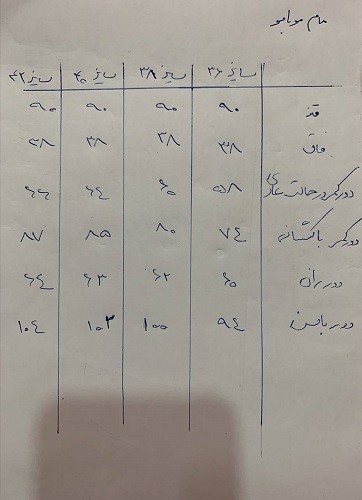 مام مونابو
سایز ۳۶ سایز ۳۸ سایز ۴۰ سایز ۴۲
قد ۹۰ ۹۰ ۹۰ ۹۰
فاق ۳۸ ۳۸ ۳۸ ۳۸
دور کمر در حالت عادی ۵۸ ۶۰ ۶۴ ۶۶
دور کمر با کشسانی ۷۴ ۸۰ ۸۵ ۸۷
دور ران ۶۰ ۶۲ ۶۳ ۶۴
دور باسن ۹۴ ۱۰۰ ۱۰۳ ۱۰۴